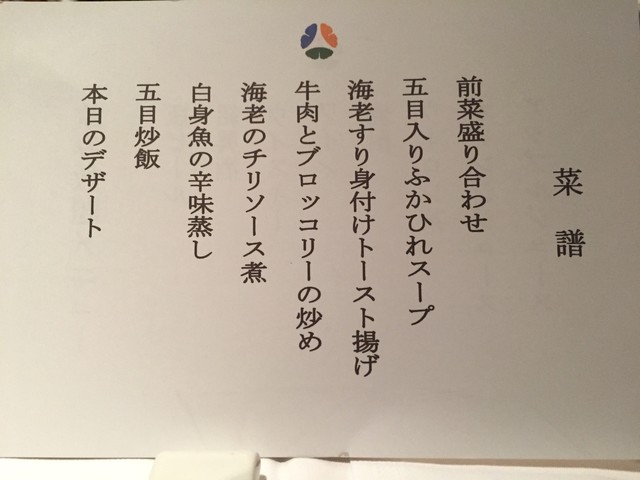 菜譜
前菜盛り合わせ
五目入りふかひれスープ
海老すり身付けトースト揚げ
牛肉とブロッコリーの炒め
海老のチリソース煮
白身魚の辛味蒸し
五目炒飯
本日のデザート